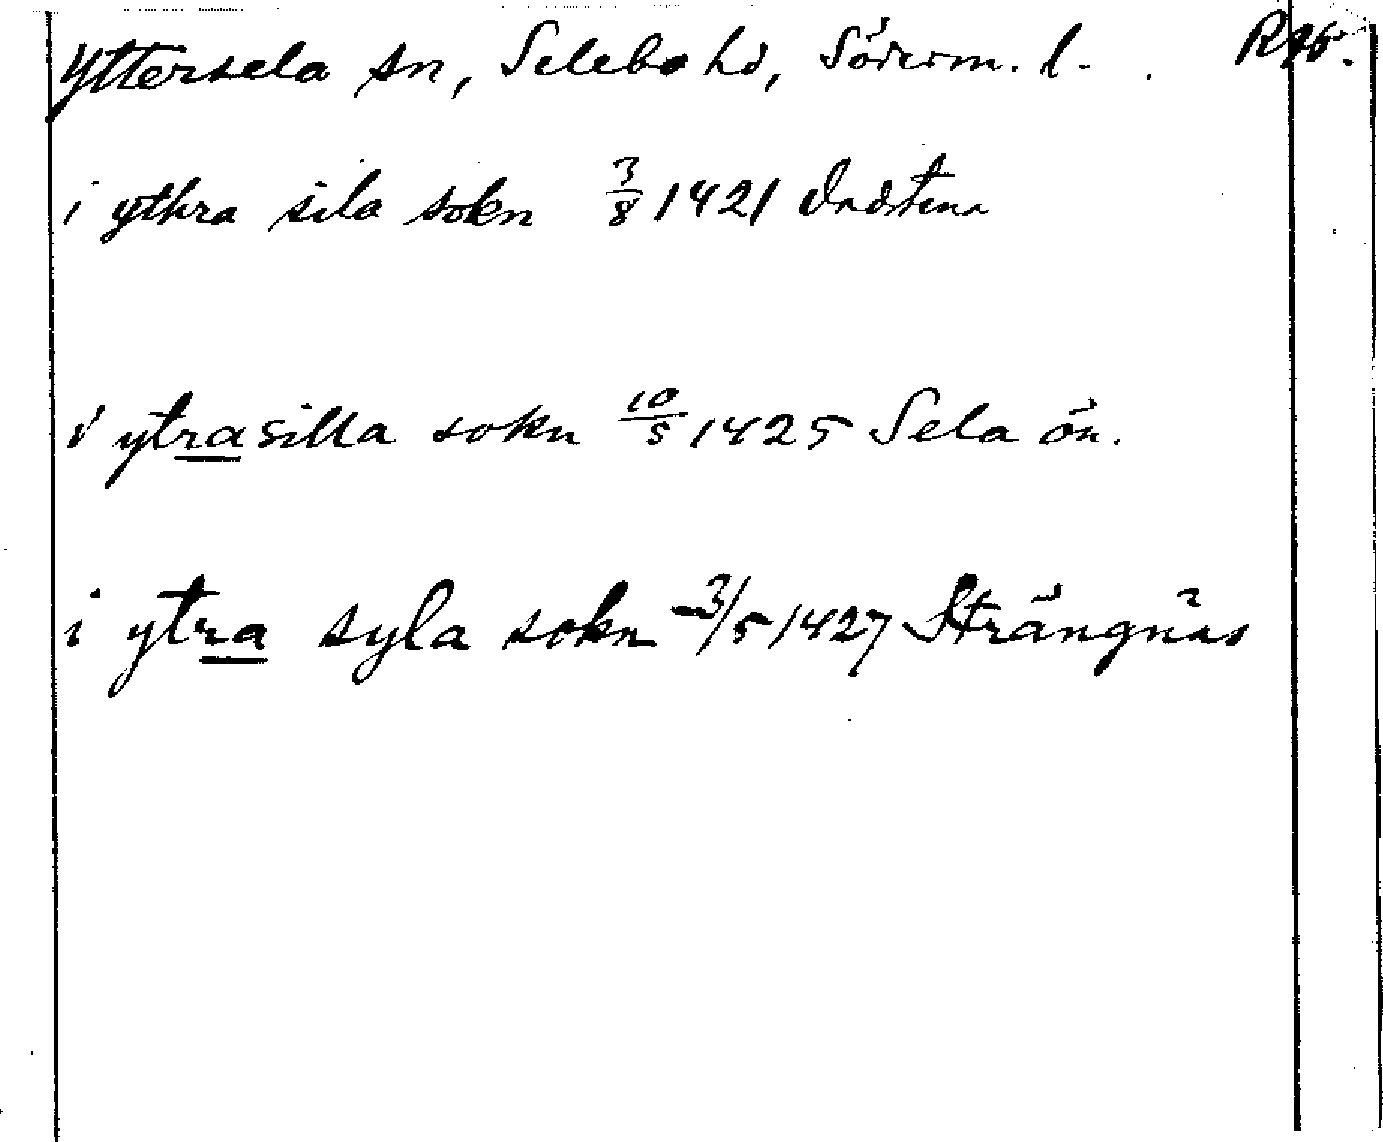 Yttersela sn, Selebo hd, Söderm. l. Rap.
i ythra sila sokn 3/8 1421 Vadstena
i ytrasilla sokn 10/5 1425 Sela ön.
i ytra syla sokn 3/5 1427 Strängnäs